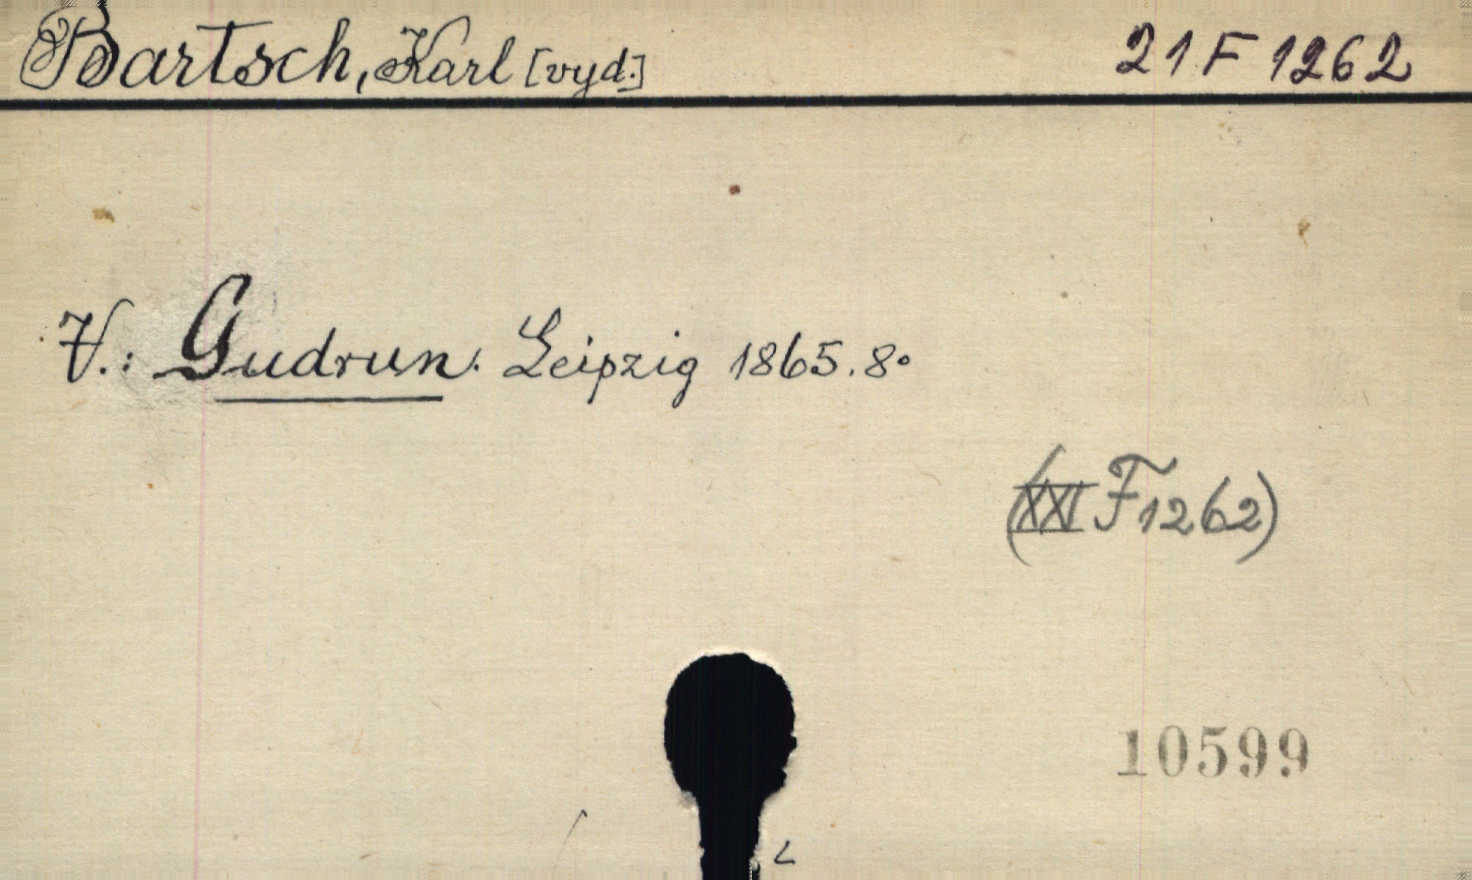 Bartsch, Karl [vyd.] 21 F 1262
V.: Gudrun. Leipzig 1865. 8°
(XXI F 1262)
10599